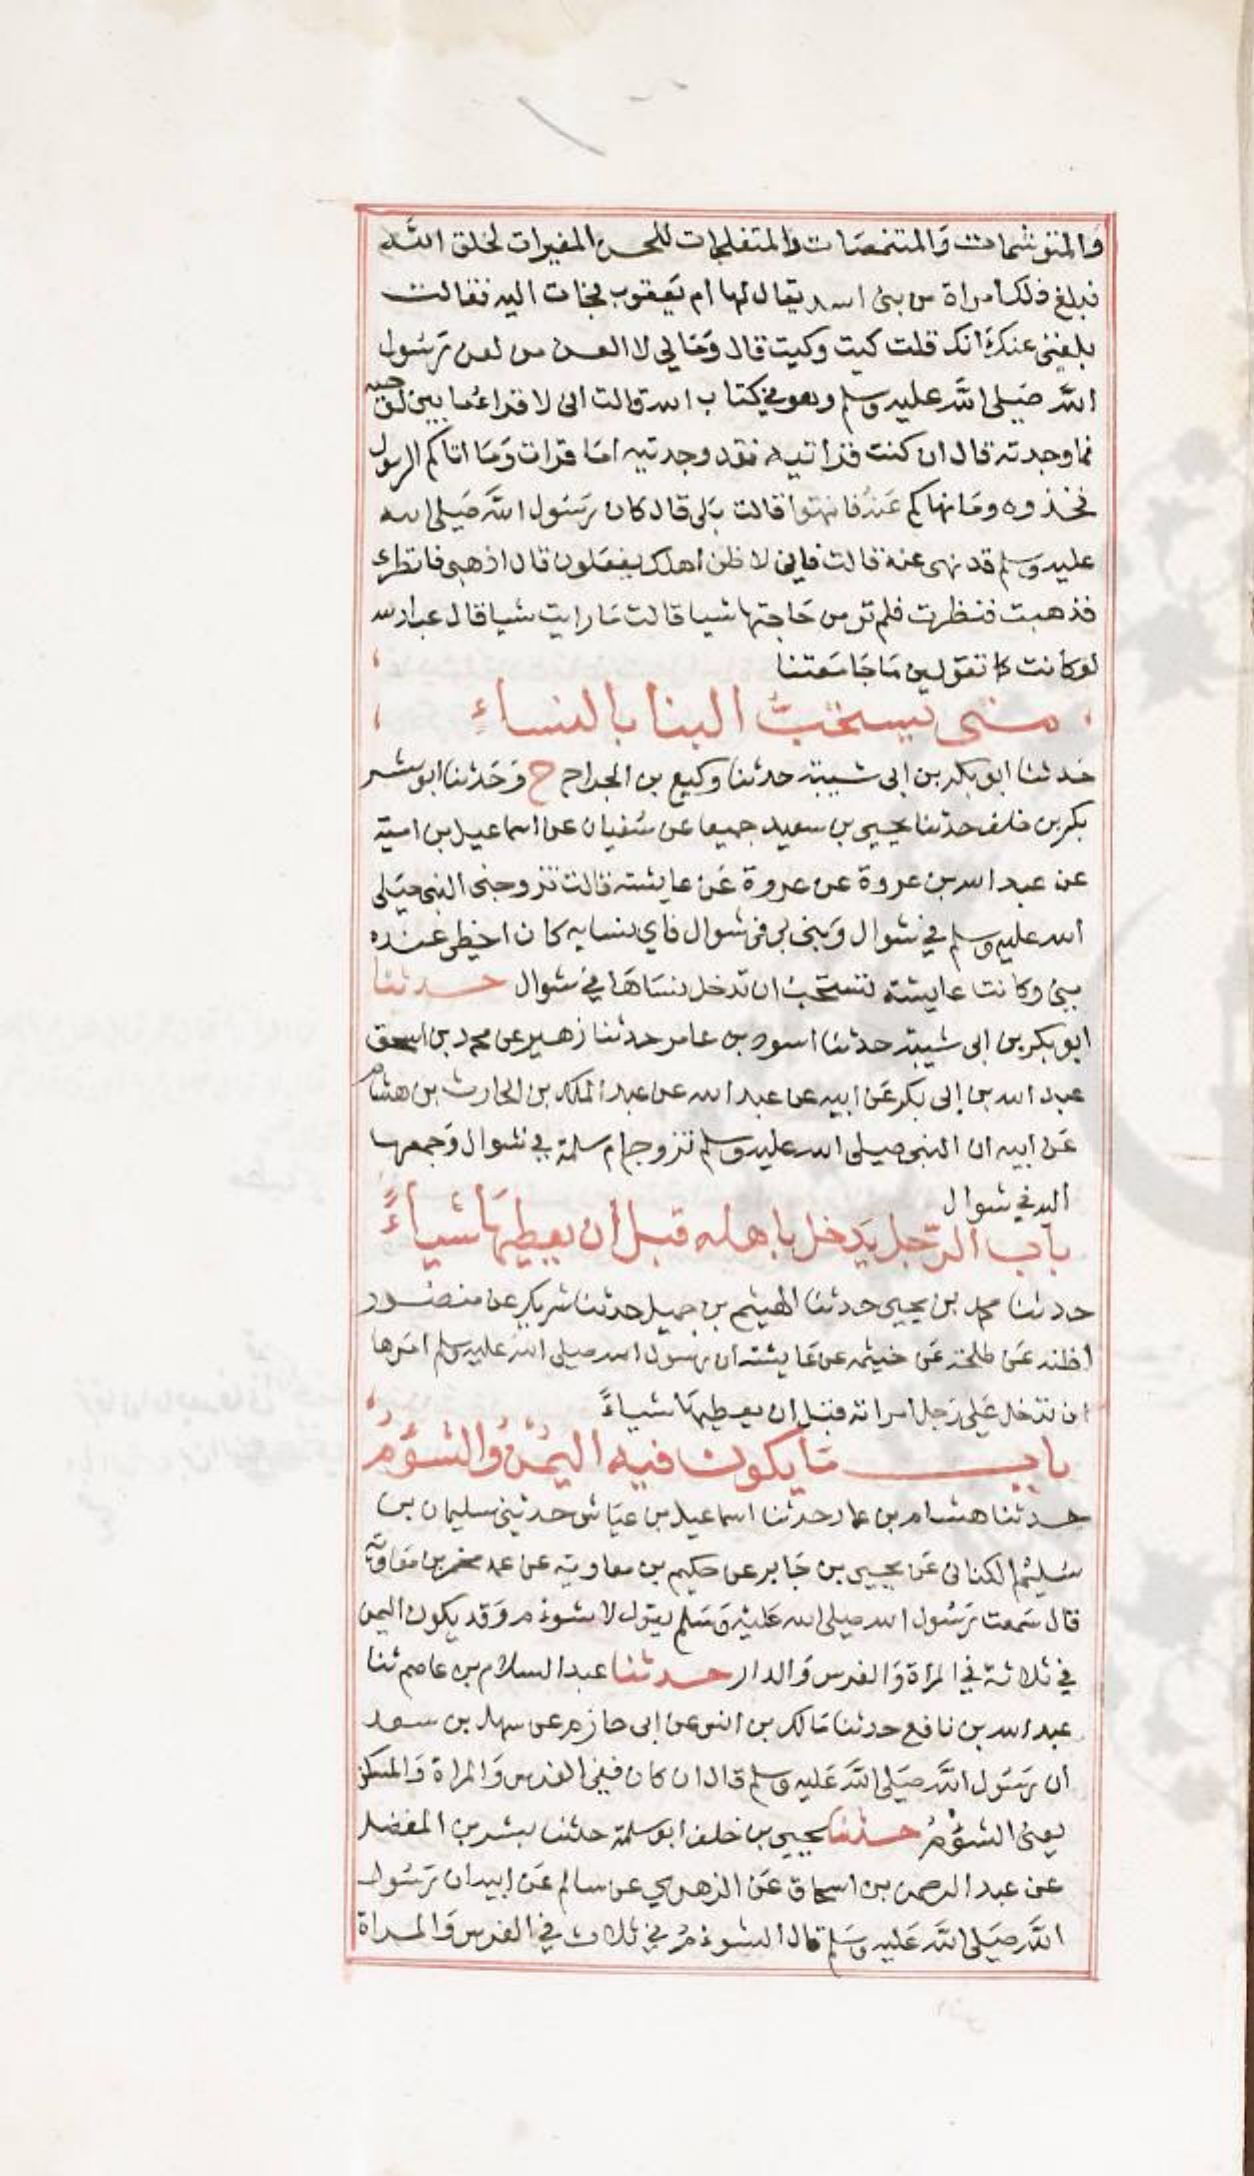 والمتوشمات والمتنمصات والمتفلجات للحسن المغيرات لخلق الله
فبلغ ذلك امراة من بنى اسد يقال لها ام يعقوب فجات اليه فقالت
بلغنى عنك انك قلت كيت وكيت قال ومالي لا العن من لعن رسول
الله صلى الله عليه وسلم وهو في كتاب الله قالت انى لاقراء ما بين لوحيه
فما وجدته قال ان كنت قراتيه فقد وجدتيه اما قرات وما اتاكم الرسول
فخذوه وما نهاكم عنه فانتهوا قالت بلى قال كان رسول الله صلى الله
عليه وسلم قد نهى عنه قالت فاني لاظن اهلك يفعلون قال اذهبى فانظرى
فذهبت فنظرت فلم تر من حاجتها شيا قالت ما رايت شيا قال عبد الله
لو كانت كما تقولين ما جامعتنا
متى يستحب البنا بالنساء
حدثنا ابو بكر بن ابى شيبة حدثنا وكيع بن الجراح ح وحدثنا ابو بشر
بكر بن خلف حدثنا يحيي بن سعيد جميعا عن سفيان عن اسماعيل بن امية
عن عبد الله بن عروة عن عروة عن عايشة قالت تزوجنى النبى صلى
الله عليه وسلم في شوال وبنى بى فى شوال فاي نسايه كان احظى عنده
منى وكانت عايشة تستحب ان تدخل نساها في شوال حدثنا
ابو بكر بن ابى شيبة حدثنا اسود بن عامر حدثنا زهير عن محمد بن اسحق
عبد الله بن إلى بكر عن ابيه عن عبد الله عن عبد الملك بن الحارث بن هشام
عن ابيه ان النبى صلى الله عليه وسلم تزوج ام سلمة في شوال وجمعها
اليه في شوال
باب الرجل يدخل باهله قبل ان يعطيها شياءً
حدثنا محمد بن يحيى حدثنا الهيثم بن جميل حدثنا شريك عن منصور
اظنه عن طلحة عن خيثمه عن عايشة ان رسول الله صلى الله عليه وسلم امرها
ان تدخل على رجل امراته قبل ان يعطيها شياءً
باب ما يكون فيه اليمن والشؤم
حدثنا هشام بن عمار حدثنا اسماعيل بن عياش حدثنى سليمان بن
سليم الكنانى عن يحيى بن جابر عن حكيم بن معاوية عن عمه مخمر بن معاوية
قال سمعت رسول الله صلى الله عليه وسلم يقول لا شوءم وقد يكون اليمن
في ثلاثة في المراة والفرس والدار حدثنا عبد السلام بن عاصم ثنا
عبد الله بن نافع حدثنا مالك بن انس عن ابى حازم عن سهل بن سعد
ان رسول الله صلى الله عليه وسلم قال ان كان ففي الفرس والمراة والمسكن
يعنى الشؤم حدثنا يحيي بن خلف ابو سلمة حدثنا بشر بن المفضل
عن عبد الرحمن بن اسحاق عن الزهري عن سالم عن ابيه ان رسول
الله صلى الله عليه وسلم قال الشوءم في ثلاث في الفرس والمراة